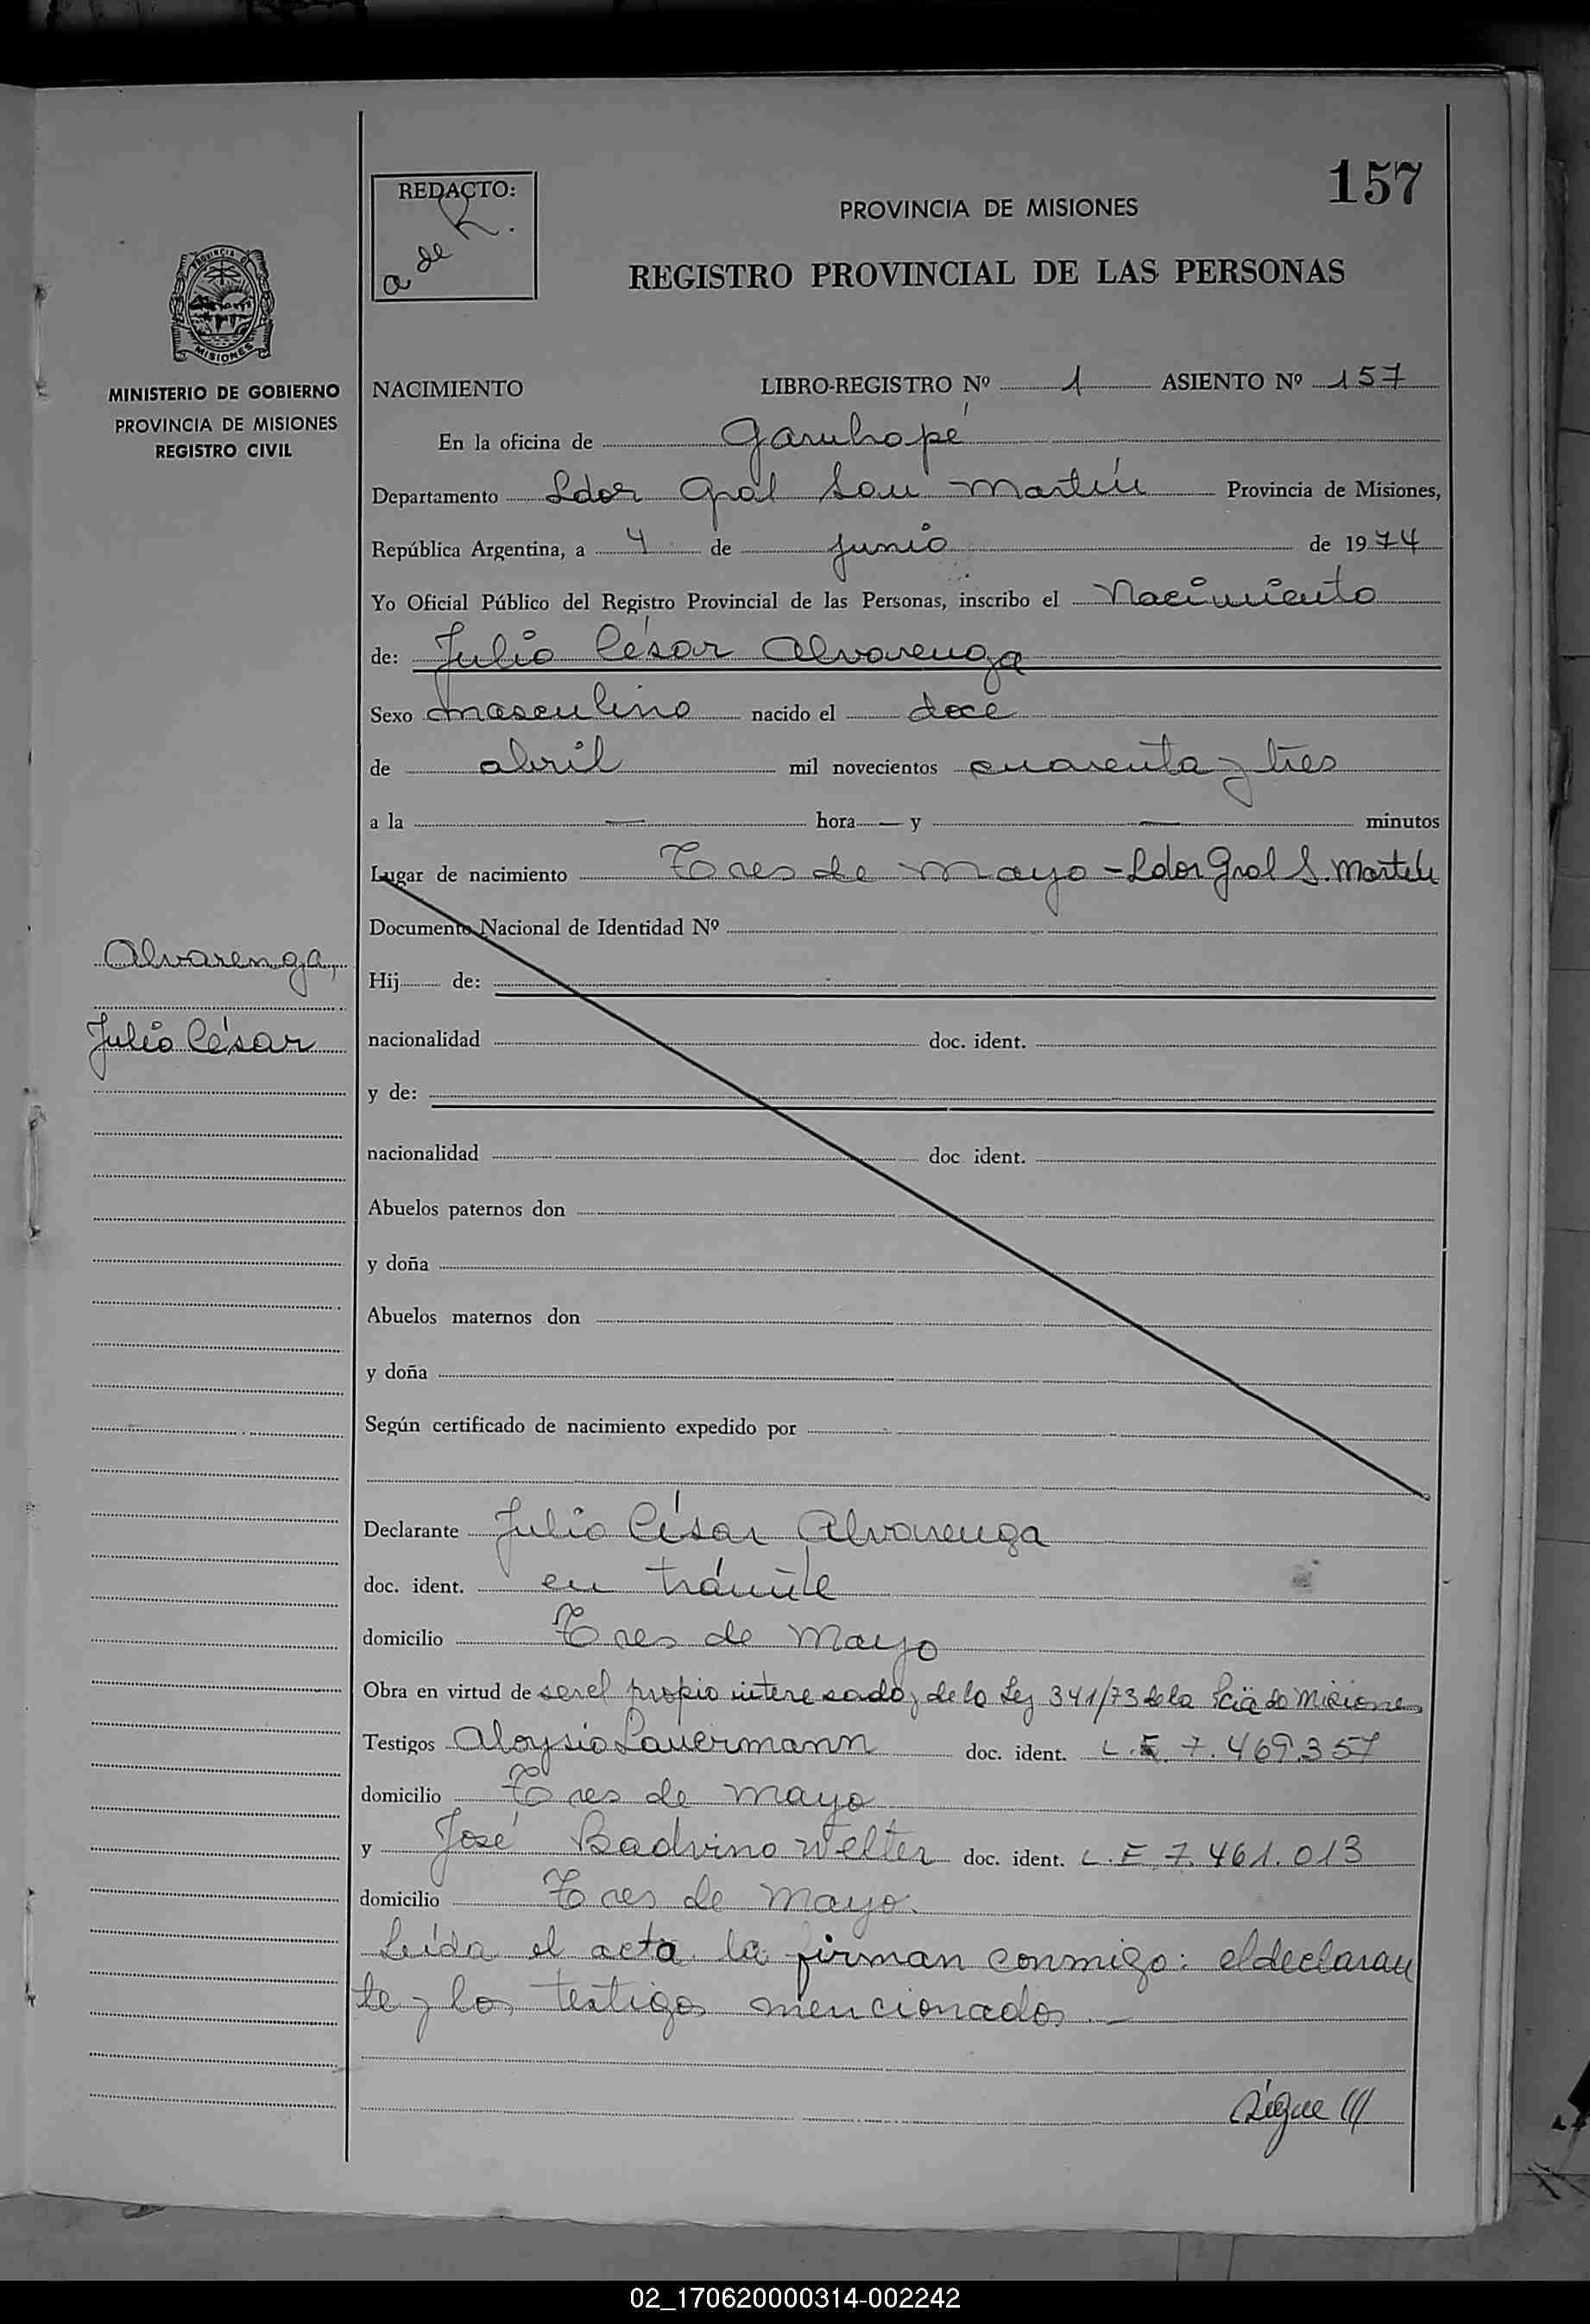 157
REDACTO:
a de R.
PROVINCIA DE MISIONES
REGISTRO PROVINCIAL DE LAS PERSONAS
PROVINCIA D
MISIONES
MINISTERIO DE GOBIERNO
PROVINCIA DE MISIONES
REGISTRO CIVIL
NACIMIENTO LIBRO-REGISTRO Nº 1 ASIENTO Nº 157
En la oficina de Garuhapé
Departamento Ldor Gral San Martín Provincia de Misiones,
República Argentina, a 4 de junio de 1974
Yo Oficial Público del Registro Provincial de las Personas, inscribo el Nacimiento
de: Julio César Alvarenga
Sexo masculino nacido el doce
de abril mil novecientos cuarenta y tres
a la — hora — y — minutos
Lugar de nacimiento Tres de Mayo - Ldor Gral S. Martín
Documento Nacional de Identidad Nº
Alvarenga,
Julio César
Hij de:
nacionalidad doc. ident.
y de:
nacionalidad doc ident.
Abuelos paternos don
y doña
Abuelos maternos don
y doña
Según certificado de nacimiento expedido por
Declarante Julio César Alvarenga
doc. ident. en trámite
domicilio Tres de Mayo
Obra en virtud de ser el propio interesado y de la Ley 341/73 de la Pcia de Misiones
Testigos Aloysio Lauermann doc. ident. L.E. 7.469.357
domicilio Tres de Mayo
y José Badvino Welter doc. ident. L.E. 7.461.013
domicilio Tres de Mayo.
Leída el acta la firman conmigo: el declaran
te y los testigos mencionados.—
Sigue ///
02_170620000314-002242